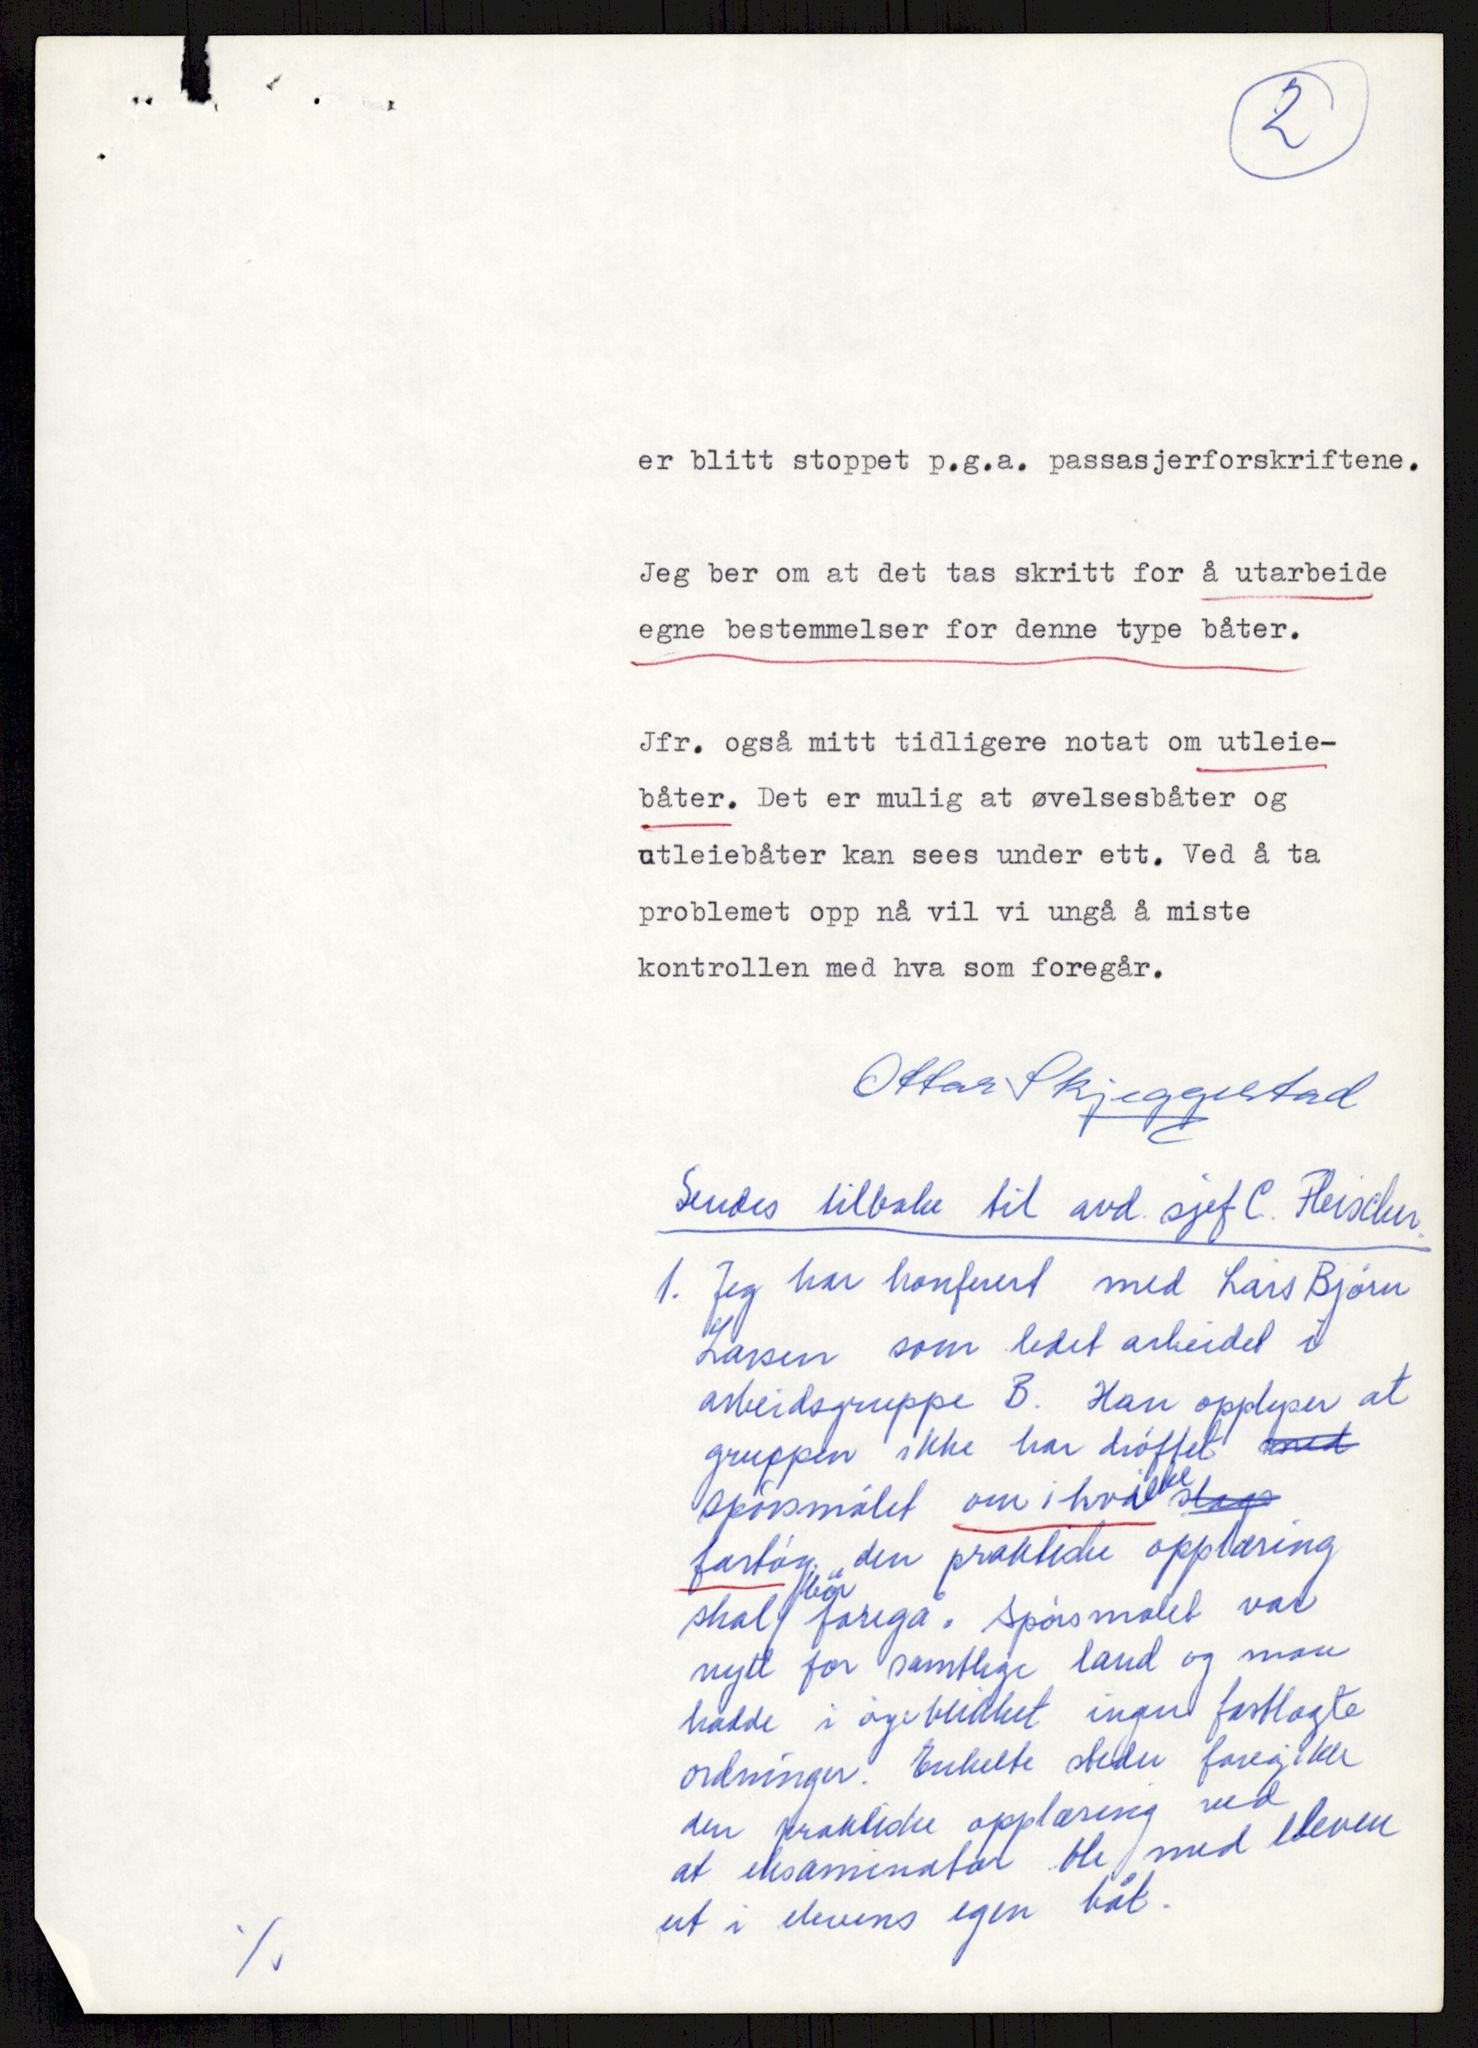 2
er blitt stoppet p.g.a. passasjerforskriftene.
Jeg ber om at det tas skritt for å utarbeide
egne bestemmelser for denne type båter.
Jfr. også mitt tidligere notat om utleie-
båter. Det er mulig at øvelsesbåter og
utleiebåter kan sees under ett. Ved å ta
problemet opp nå vil vi ungå å miste
kontrollen med hva som foregår.
Ottar Skjeggestad
Sendes tilbake til avd. sjef C. Fleischer.
1. Jeg har konferert med Lars Bjørn
Larsen som ledet arbeidet i
arbeidsgruppe B. Han opplyser at
gruppen ikke har drøftet med
spørsmålet om i hvilke slags
fartøy den praktiske opplæring
skal/bør foregå. Spørsmålet var
nytt for samtlige land og man
hadde i øyeblikket ingen fastlagte
ordninger. Enkelte steder foregikk
den praktiske opplæring ved
at eksaminator ble med eleven
ut i elevens egen båt.